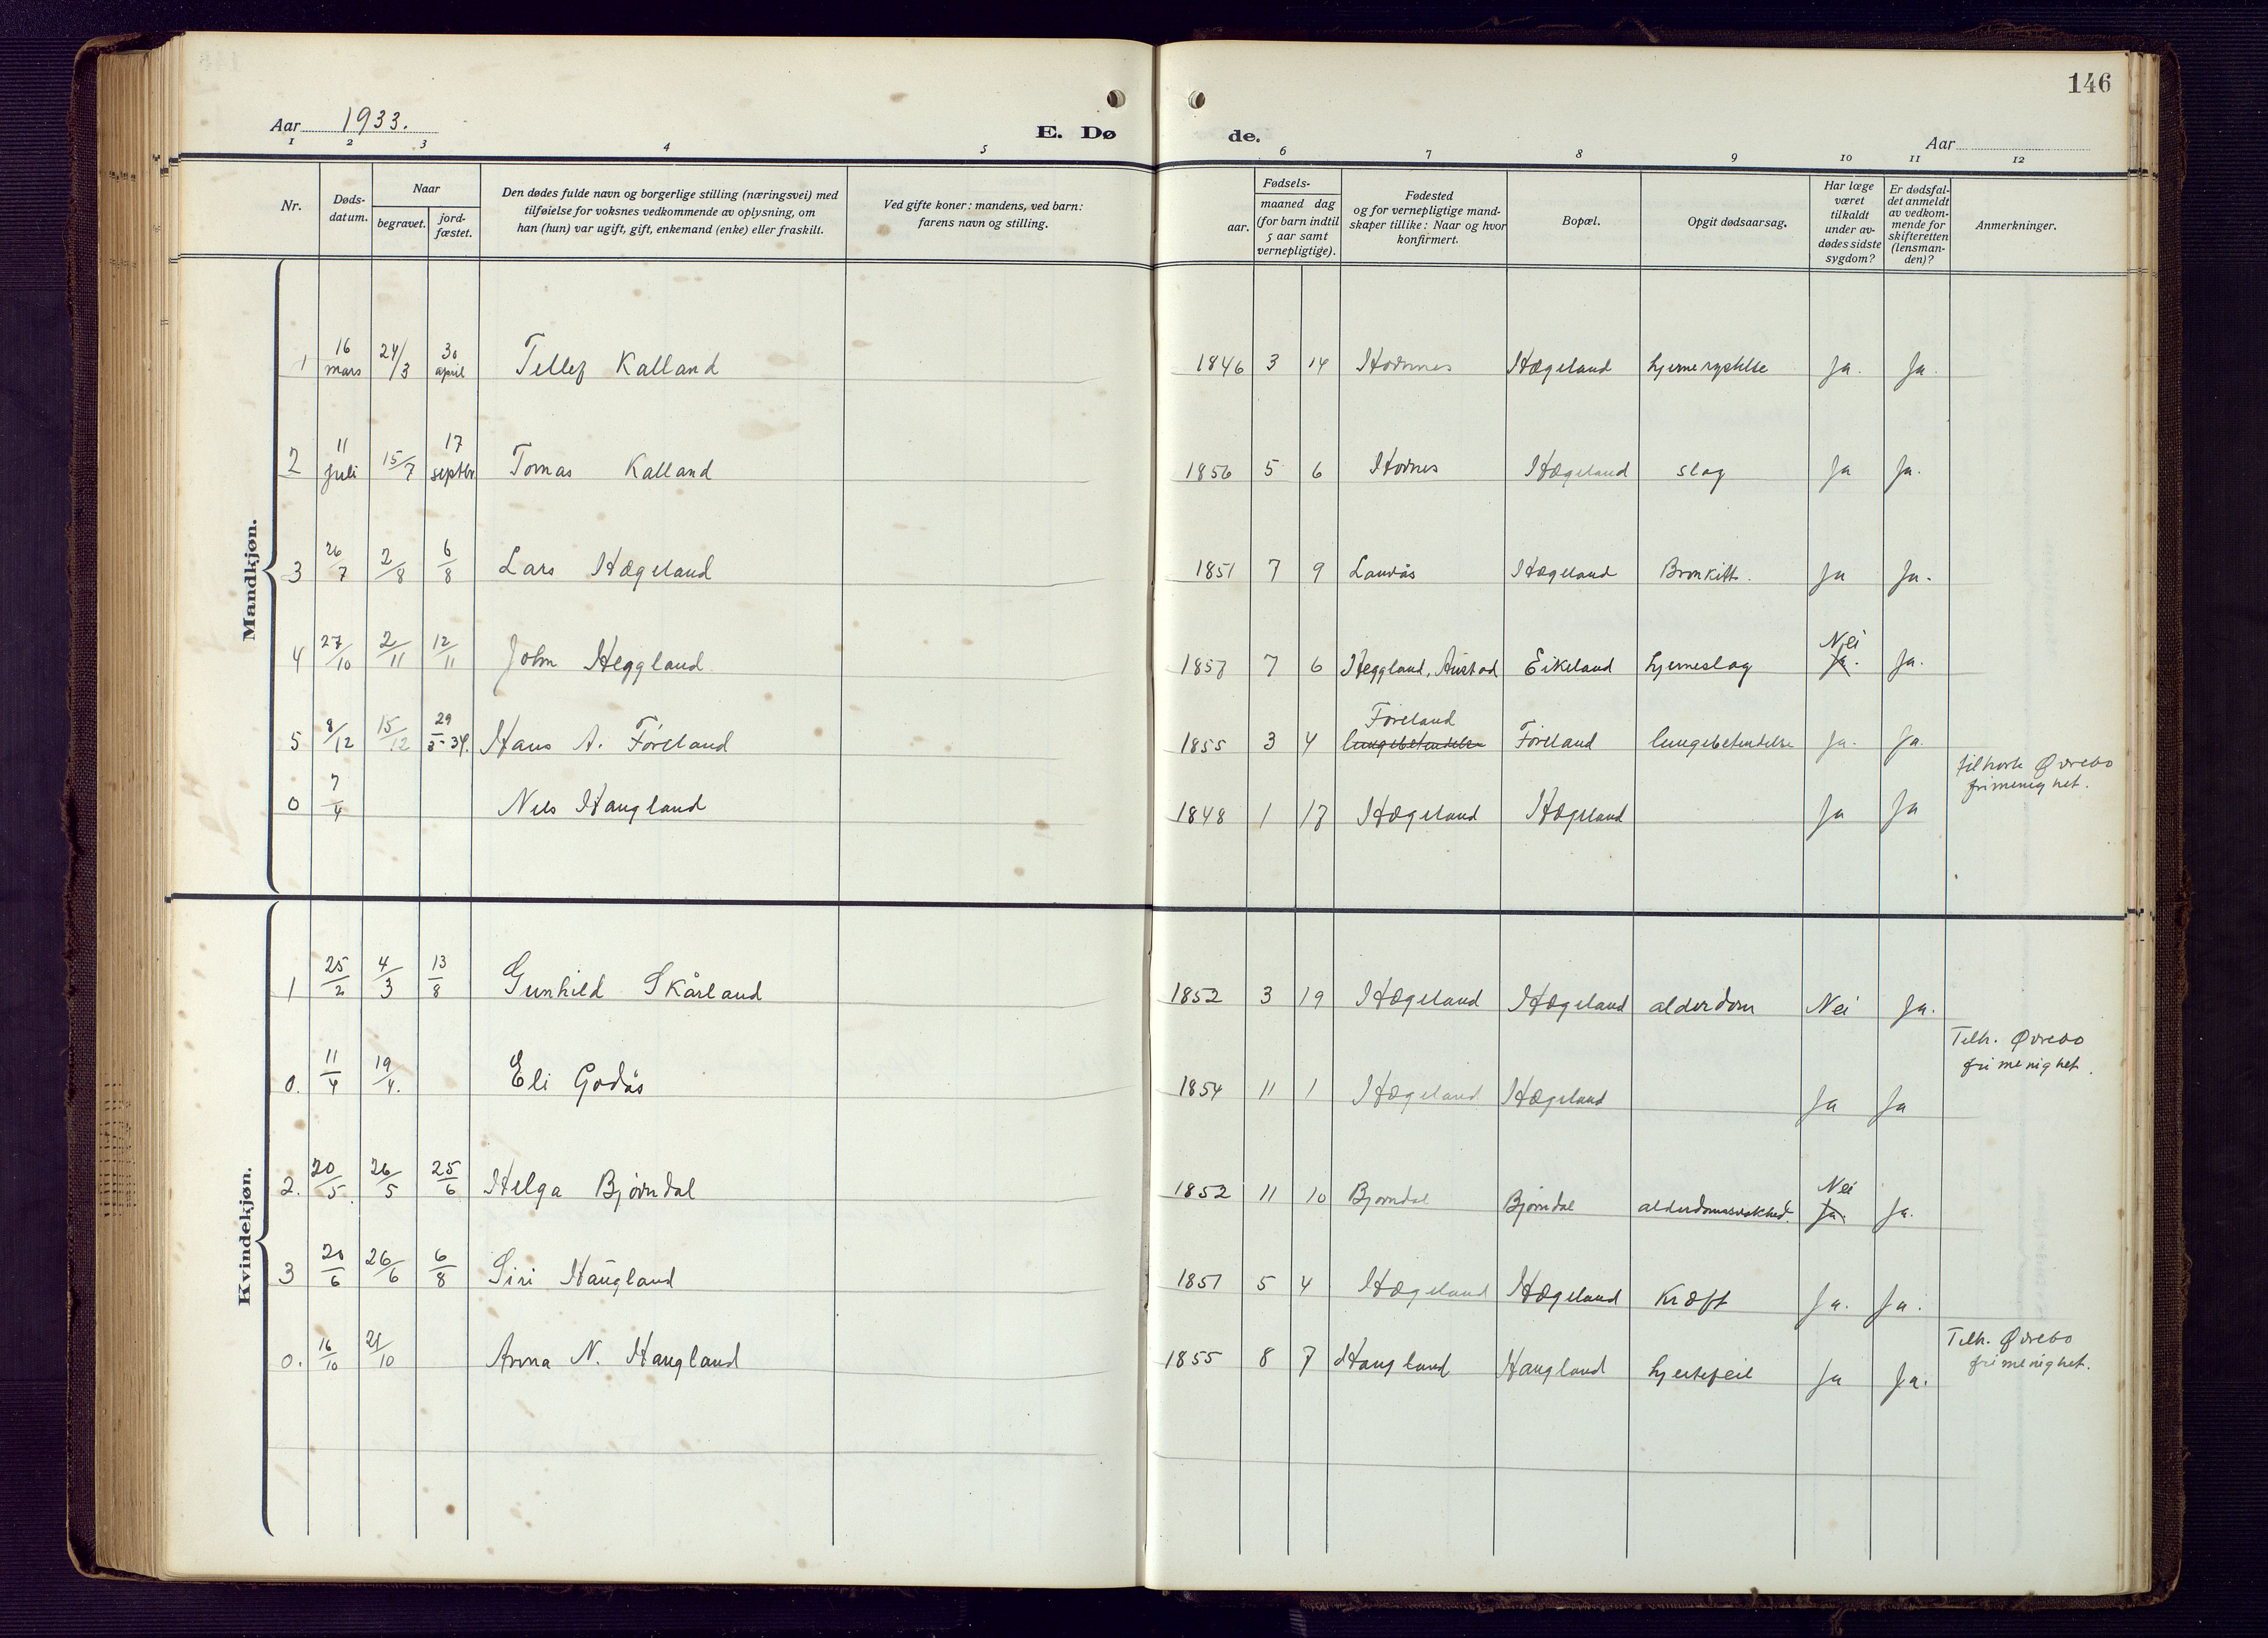 146
Aar 1933.
E. Dø
de.
Aar
1 2 3 4 5 6 7 8 9 10 11 12
Nr.
Døds-
datum.
Naar
begravet.
jord-
fæstet.
Den dødes fulde navn og borgerlige stilling (næringsvei) med
tilføielse for voksnes vedkommende av oplysning, om
han (hun) var ugift, gift, enkemand (enke) eller fraskilt.
Ved gifte koner: mandens, ved barn:
farens navn og stilling.
Fødsels-
aar.
maaned dag
(for barn indtil
5 aar samt
vernepligtige).
Fødested
og for vernepligtige mand-
skaper tillike: Naar og hvor
konfirmert.
Bopæl.
Opgit dødsaarsag.
Har læge
været
tilkaldt
under av-
dødes sidste
sygdom?
Er dødsfal-
det anmeldt
av vedkom-
mende for
skifteretten
(lensman-
den)?
Anmerkninger.
Mandkjøn.
1 16 mars 24/3 30 april Tellef Kalland 1846 3 14 Hornnes Hægeland hjernerystelse Ja. Ja.
2 11 juli 15/7 17 septbr Tomas Kalland 1856 5 6 Hornes Hægeland slag Ja Ja.
3 26/7 2/8 6/8 Lars Hægeland 1851 7 9 Landås Hægeland Bronkitt. Ja Ja.
4 27/10 2/11 12/11 John Heggland 1857 7 6 Heggland, Austad Eikeland hjerneslag Nei Ja. Ja.
5 8/12 15/12 29/3-34. Hans A. Føreland 1855 3 4 Føreland lungebetendelse Føreland lungebetendelse Ja. Ja.
0 7/4 Nils Haugland 1848 1 17 Hægeland Hægeland Ja Ja tilhørte Øvrebø
frimenighet.
Kvindekjøn.
1 25/2 4/3 13/8 Gunhild Skårland 1852 3 19 Hægeland Hægeland alderdom Nei Ja.
0. 11/4 19/4. Eli Godås 1854 11 1 Hægeland Hægeland Ja Ja Tilh. Øvrebø
frimenighet.
2. 20/5. 26/5 25/6 Helga Bjørndal 1852 11 10 Bjørndal Bjørndal alderdomssvakhed. Nei Ja. Ja.
3 20/6 26/6 6/8 Siri Haugland 1851 5 4 Hægeland Hægeland Kræft Ja. Ja.
0. 16/10 21/10 Anna N. Haugland 1855 8 7 Haugland Haugland hjertefeil Ja Ja. Tilh. Øvrebø
frimenighet.